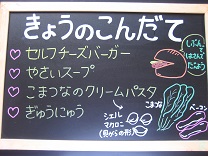 きょうのこんだて
♡ セルフチーズバーガー
♡ やさいスープ
♡ こまつなのクリームパスタ
♡ ぎゅうにゅう
じぶんで
はさんで
たべよう
シェル
マカロニ
(貝がらの形)
こまつな
ベーコン